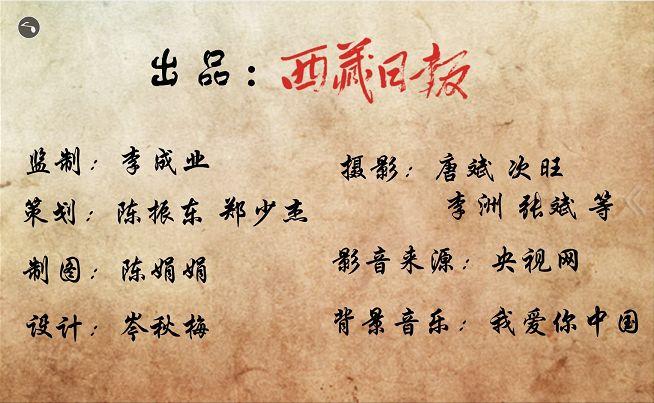 出品：西藏日报
监制：李成业
策划：陈振东 郑少杰
制图：陈娟娟
设计：岑秋梅
摄影：唐斌 次旺
李洲 张斌 等
影音来源：央视网
背景音乐：我爱你中国